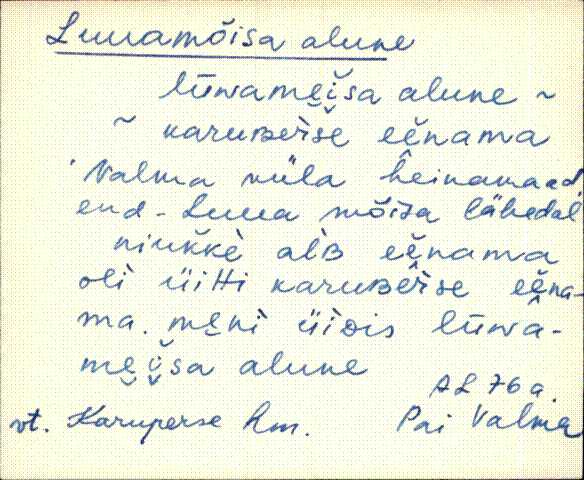 Luuamõisa alune
lūwamei̬šsa alune ~
~ karuʙeršè eènama
Valma küla heinamaad
end. Luua mõisa lähedal
niukkè alʙ eènama
oli üitti karuʙerse eèna-
ma. meni üìdis lūwa-
mei̬šsa alune
AL 76 a.
vt. Karuperse hm. Pai Valma